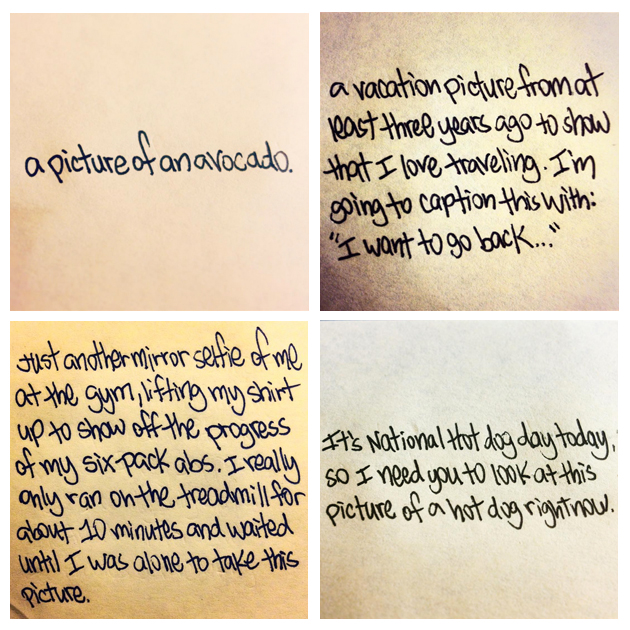 a picture of an avocado.
a vacation picture from at
least three years ago to show
that I love traveling. I'm
going to caption this with:
"I want to go back..."
Just another mirror selfie of me
at the gym, lifting my shirt
up to show off the progress
of my six-pack abs. I really
only ran on the treadmill for
about 10 minutes and waited
until I was alone to take this
picture.
It's National Hot dog day today,
so I need you to look at this
picture of a hot dog right now.